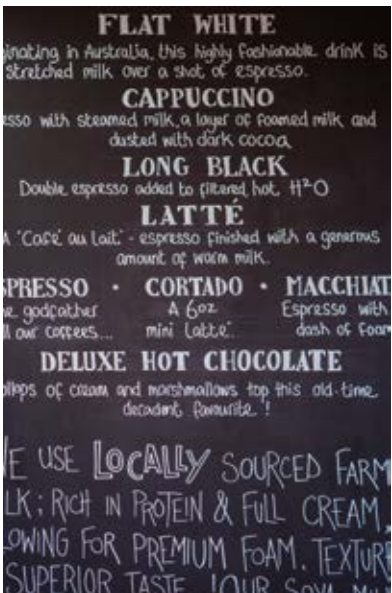 FLAT WHITE
ginating in Australia, this highly fashionable drink is
stretched milk over a shot of espresso.
CAPPUCCINO
esso with steamed milk, a layer of foamed milk and
dusted with dark cocoa
LONG BLACK
Double espresso added to filtered hot H²O
LATTÉ
A 'Café au lait' - espresso finished with a generous
amount of warm milk.
SPRESSO • CORTADO • MACCHIAT
he godfather A 6oz Espresso with
ll our coffees... mini latte. dash of foam
DELUXE HOT CHOCOLATE
ollops of cream and marshmallows top this old-time
decadent favourite !
WE USE LOCALLY SOURCED FARM
LK; RICH IN PROTEIN & FULL CREAM,
LOWING FOR PREMIUM FOAM, TEXTURE
SUPERIOR TASTE. OUR SOYA